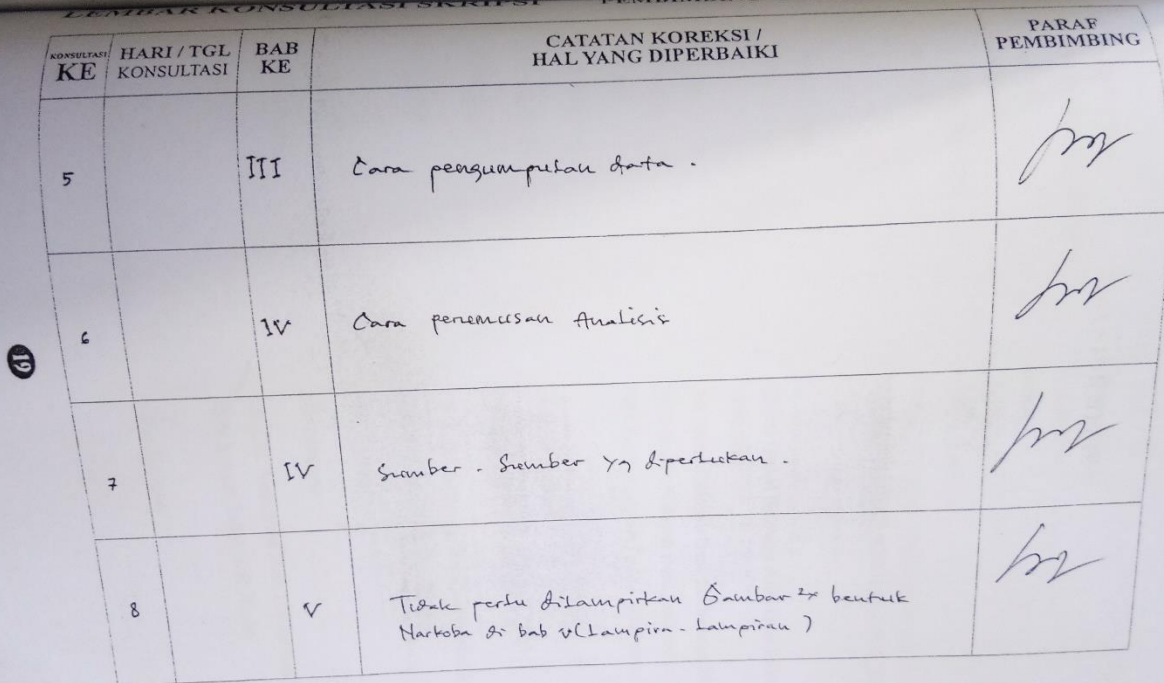 LEMBAR KONSULTASI SKRIPSI
KONSULTASI KE HARI / TGL KONSULTASI BAB KE CATATAN KOREKSI / HAL YANG DIPERBAIKI PARAF PEMBIMBING
5 III Cara pengumpulan data .
6 IV Cara perumusan Analisis
19
7 IV Sumber - Sumber yg diperlukan .
8 V Tidak perlu dilampirkan Gambar 2x bentuk
Narkoba di bab v (Lampira - Lampiran )